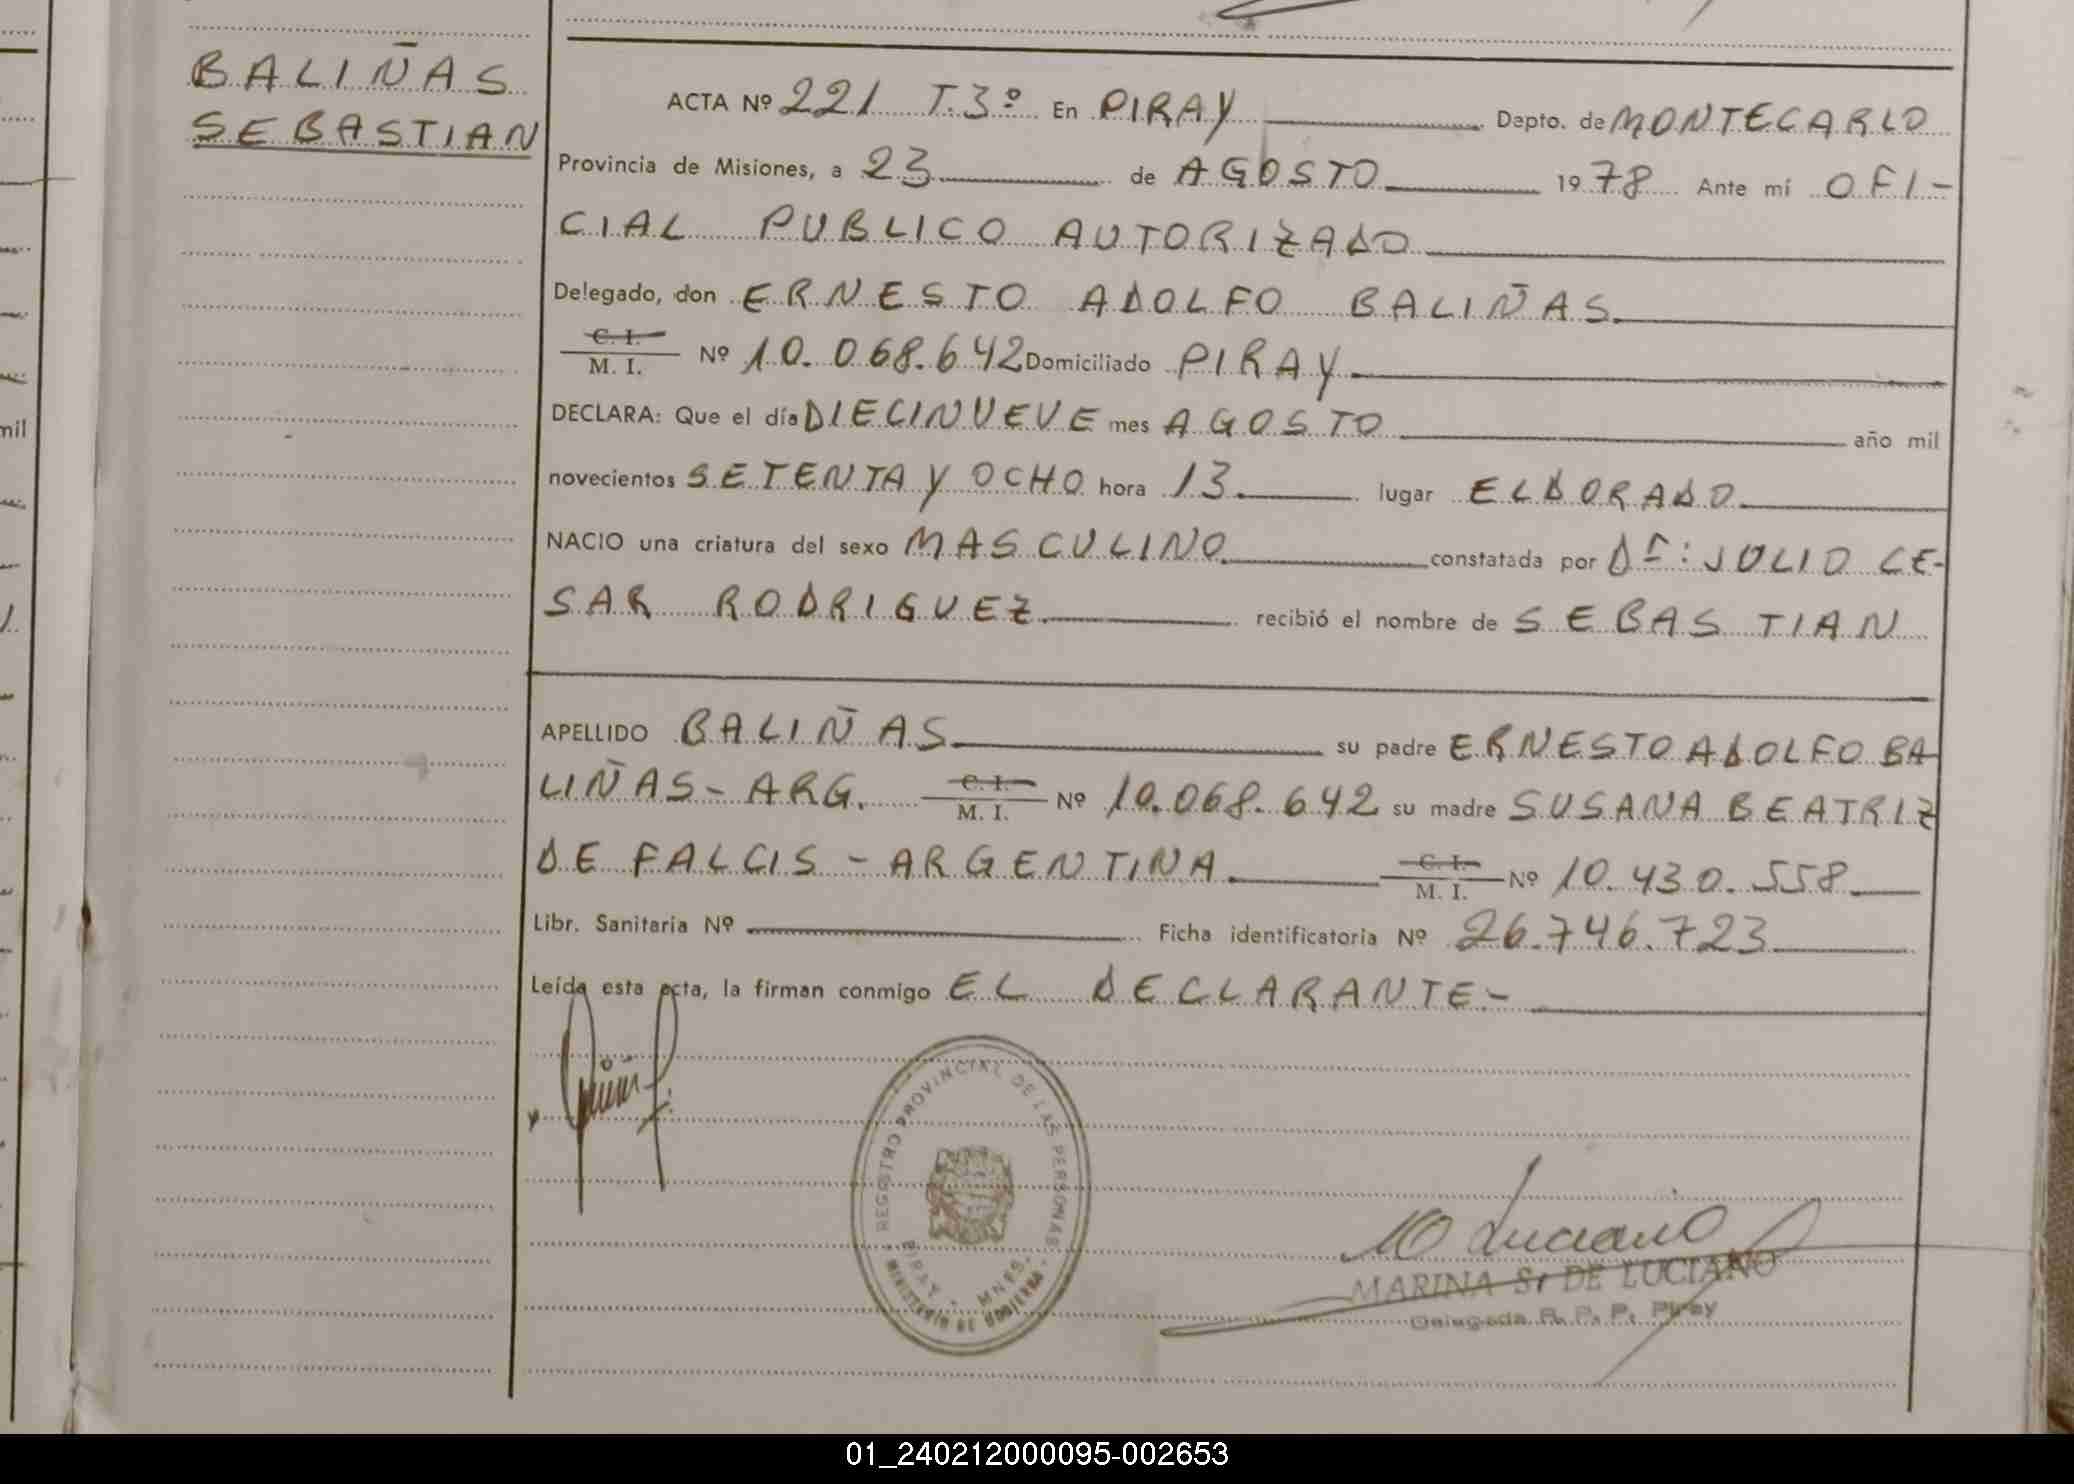 BALIÑAS
SEBASTIAN
ACTA Nº 221 T.3º En PIRAY Depto. de MONTECARLO
Provincia de Misiones, a 23 de AGOSTO 1978 Ante mí OFI-
CIAL PUBLICO AUTORIZADO
Delegado, don ERNESTO ADOLFO BALIÑAS
C. I.
M. I. Nº 10.068.642 Domiciliado PIRAY
DECLARA: Que el día DIECINUEVE mes AGOSTO año mil
novecientos SETENTA Y OCHO hora 13 lugar ELDORADO
NACIO una criatura del sexo MASCULINO constatada por Dr: JULIO CE-
SAR RODRIGUEZ recibió el nombre de SEBASTIAN
APELLIDO BALIÑAS su padre ERNESTO ADOLFO BA
LIÑAS - ARG. C. I. M. I. Nº 10.068.642 su madre SUSANA BEATRIZ
DE FALCIS - ARGENTINA C. I. M. I. Nº 10.430.558
Libr. Sanitaria Nº Ficha identificatoria Nº 26.746.723
Leída esta acta, la firman conmigo EL DECLARANTE-
REGISTRO PROVINCIAL DE LAS PERSONAS
PIRAY - MNES.
MINISTERIO DE GOBIERNO
M Luciano
MARINA S. DE LUCIANO
Delegada R. P. P. Piray
mil
01_240212000095-002653